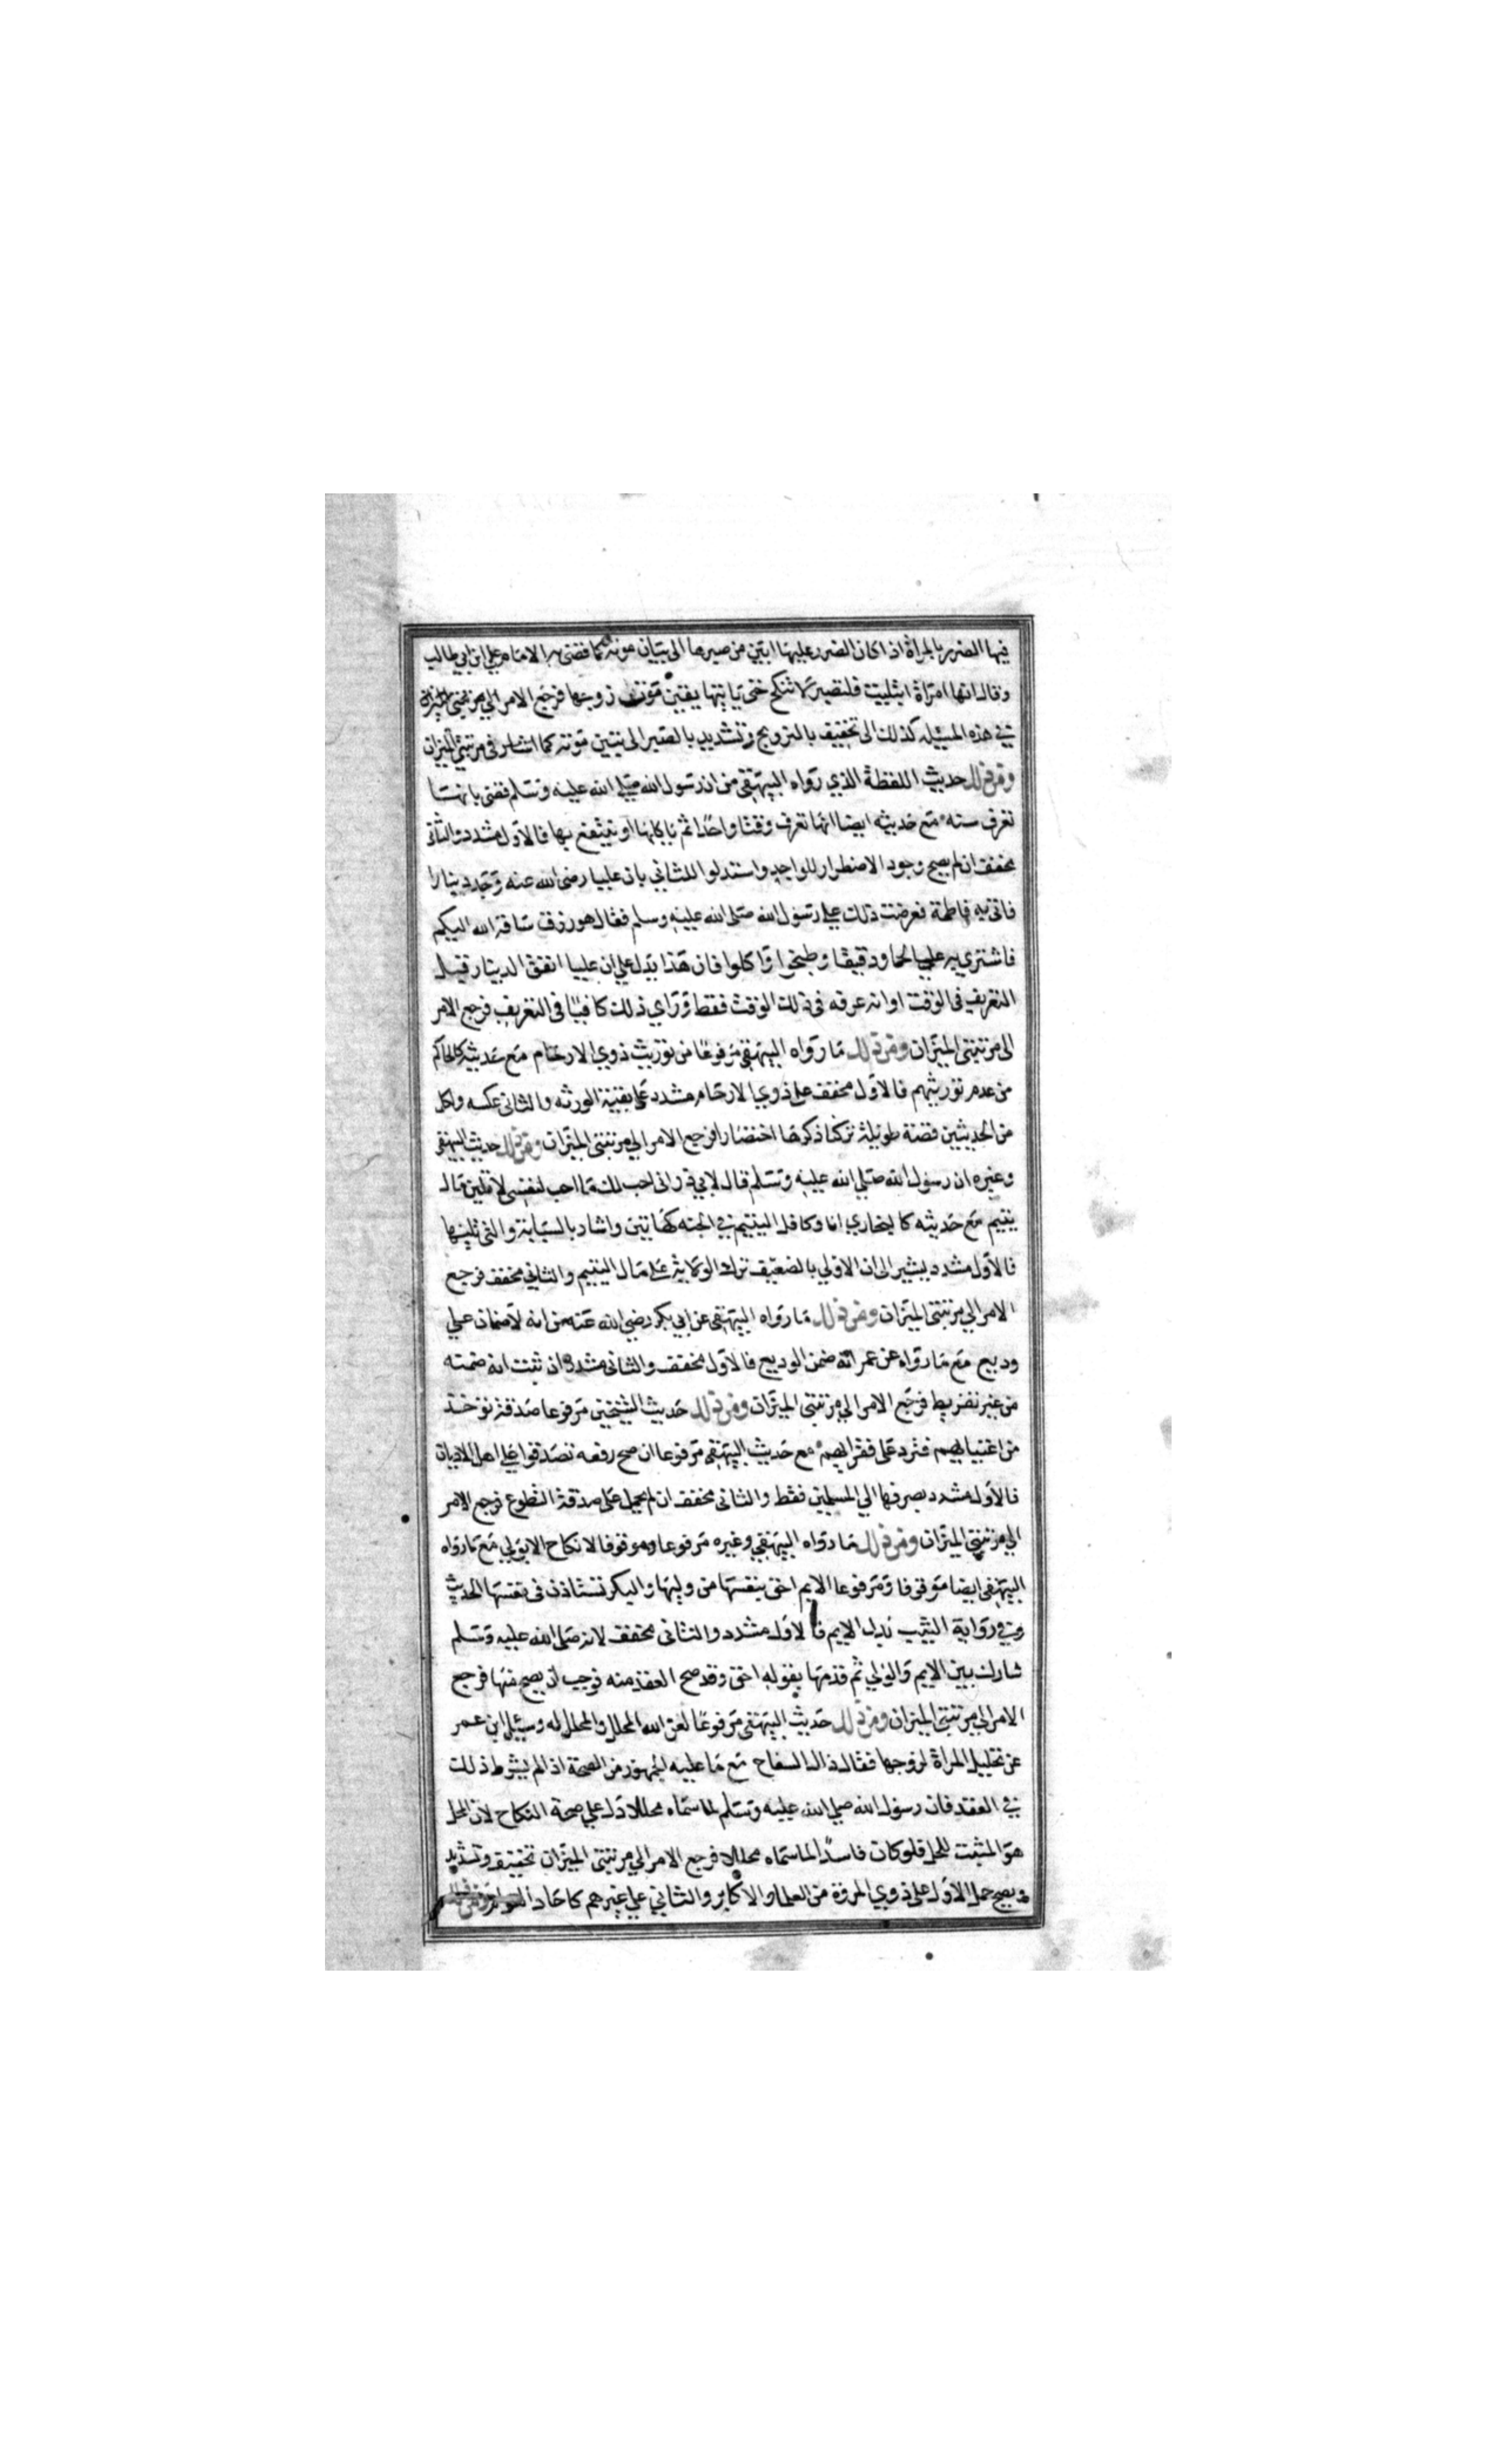 فيها الضرر بالمراة اذا كان الضرر عليها ابين من صبرها الى بيان موته كما قضى به الامام علي ابن ابي طالب
وقال انها امراة ابتليت فلتصبر لا تنكح حتى ياتيها يقين موت زوجها فرجع الامر الي مرتبتي الميزان
في هذه المسئله كذلك الى تخفيف بالتزويج وتشديد بالصبر الى يتبين موته كما اشار في مرتبتي الميزان
ومن ذلك حديث اللقطة الذي رواه البيهقي من ان رسول الله صلي الله عليه وسلم قضى بانها
تعرف سنه مع حديثه ايضا انها تعرف وقتا واحدا ثم ياكلها او ينتفع بها فالاول مشدد والثاني
مخفف ان لم يصح وجود الاضطرار للواجد واستدلوا للثاني بان عليا رضى الله عنه وجد دينارا
فاتى به فاطمة فعرضت ذلك علي رسول الله صلى الله عليه وسلم فقال هو رزق ساقه الله اليكم
فاشتري به علي لحما ودقيقا وطبخوا واكلوا فان هذا يدل علي ان عليا انفق الدينار قبل
التعريف في الوقت او انه عرفه في ذلك الوقت فقط وراي ذلك كافيا في التعريف فرجع الامر
الى مرتبتي الميزان ومن ذلك ما رواه البيهقي مرفوعا من توريث ذوي الارحام مع حديثه كالحاكم
من عدم توريثهم فالاول مخفف على ذوي الارحام مشدد على بقية الورثه والثاني عكسه ولكل
من الحديثين قصة طويلة تركنا ذكرها اختصارا فرجع الامر الي مرتبتي الميزان ومن ذلك حديث البيهقي
وغيره ان رسول الله صلي الله عليه وسلم قال لابي ذر انى احب لك ما احب لنفسي لا تلين مال
يتيم مع حديثه كالبخاري انا وكافل اليتيم في الجنه كهاتين واشار بالسبابة والتي تليها
فالاول مشدد يشير الى ان الاولي بالضعيف ترك الولاية على مال اليتيم والثاني مخفف فرجع
الامر الي مرتبتي الميزان ومن ذلك ما رواه البيهقي عن ابي بكر رضي الله عنه من انه لا ضمان علي
وديع مع ما رواه عن عمر انه ضمن الوديع فالاول مخفف والثاني مشدد ان ثبت انه ضمنه
من غير تفريط فرجع الامر الي مرتبتي الميزان ومن ذلك حديث الشيخين مرفوعا صدقة توخذ
من اغنيايهم فترد على فقرايهم مع حديث البيهقي مرفوعا ان صح رفعه تصدقوا علي اهل الاديان
فالاول مشدد بصرفها الي المسلمين فقط والثاني مخفف ان لم يحمل على صدقة التطوع فرجع الامر
الي مرتبتي الميزان ومن ذلك ما رواه البيهقي وغيره مرفوعا وموقوفا لا نكاح الا بولي مع ما رواه
البيهقي ايضا موقوفا ومرفوعا الايم احق بنفسها من وليها والبكر تستاذن في نفسها الحديث
وفي رواية الثيب بدل الايم فالاول مشدد والثاني مخفف لانه صلى الله عليه وسلم
شارك بين الايم والولي ثم قدمها بقوله احق وقد صح العقد منه فوجب ان يصح منها فرجع
الامر الي مرتبتي الميزان ومن ذلك حديث البيهقي مرفوعا لعن الله المحلل والمحلل له وسيل ابن عمر
عن تحليل المراة لزوجها فقال ذاك السفاح مع ما عليه الجمهور من الصحة اذا لم يشرط ذلك
في العقد فان رسول الله صلي الله عليه وسلم لما سماه محللا دل على صحة النكاح لان المحل
هو المثبت للحل فلو كان فاسدا لما سماه محللا فرجع الامر الي مرتبتي الميزان تخفيف وتشديد
ويصح حمل الاول على ذوي المروة من العلما والاكابر والثاني علي غيرهم كاحاد